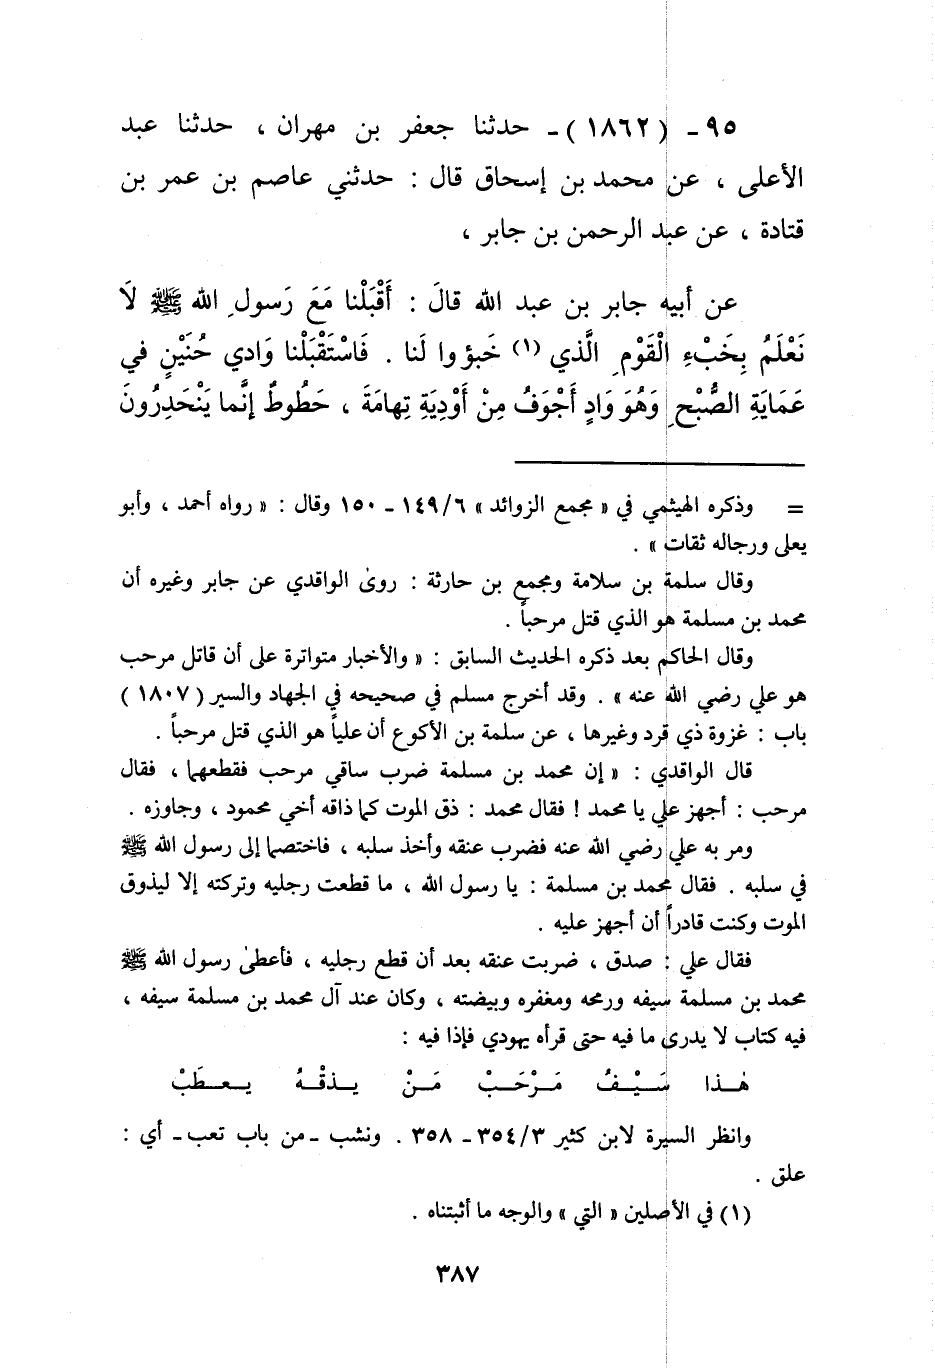 ٩٥ - (١٨٦٢) - حدثنا جعفر بن مهران ، حدثنا عبد
الأعلى ، عن محمد بن إسحاق قال : حدثني عاصم بن عمر بن
قتادة ، عن عبد الرحمن بن جابر ،
عن أبيه جابر بن عبد الله قالَ : أَقْبَلْنا مَعَ رَسولِ الله ﷺ لَا
نَعْلَمُ بِخَبْءِ الْقَوْمِ الَّذي (١) خَبؤوا لَنا . فَاسْتَقْبَلْنا وَادي حُنَيْنٍ في
عَمَايَةِ الصُّبْحِ وَهُوَ وَادٍ أَجْوَفُ مِنْ أَوْدِيَةِ تِهامَةَ ، حَطُوطٌ إِنَّما يَنْحَدِرُونَ
= وذكره الهيثمي في « مجمع الزوائد » ١٤٩/٦ - ١٥٠ وقال : « رواه أحمد ، وأبو
يعلى ورجاله ثقات » .
وقال سلمة بن سلامة ومجمع بن حارثة : روىٰ الواقدي عن جابر وغيره أن
محمد بن مسلمة هو الذي قتل مرحباً .
وقال الحاكم بعد ذكره الحديث السابق : « والأخبار متواترة على أن قاتل مرحب
هو علي رضي الله عنه » . وقد أخرج مسلم في صحيحه في الجهاد والسير ( ١٨٠٧ )
باب : غزوة ذي قرد وغيرها ، عن سلمة بن الأكوع أن علياً هو الذي قتل مرحباً .
قال الواقدي : « إن محمد بن مسلمة ضرب ساقي مرحب فقطعهما ، فقال
مرحب : أجهز علي يا محمد ! فقال محمد : ذق الموت كما ذاقه أخي محمود ، وجاوزه .
ومر به علي رضي الله عنه فضرب عنقه وأخذ سلبه ، فاختصما إلى رسول الله ﷺ
في سلبه . فقال محمد بن مسلمة : يا رسول الله ، ما قطعت رجليه وتركته إلا ليذوق
الموت وكنت قادراً أن أجهز عليه .
فقال علي : صدق ، ضربت عنقه بعد أن قطع رجليه ، فأعطىٰ رسول الله ﷺ
محمد بن مسلمة سيفه ورمحه ومغفره وبيضته ، وكان عند آل محمد بن مسلمة سيفه ،
فيه كتاب لا يدرى ما فيه حتى قرأه يهودي فإذا فيه :
هٰذا سَيْفُ مَرْحَبْ مَنْ يذقْهُ يعطَبْ
وانظر السيرة لابن كثير ٣٥٤/٣ - ٣٥٨ . ونشب - من باب تعب - أي :
علق .
(١) في الأصلين « التي » والوجه ما أثبتناه .
٣٨٧